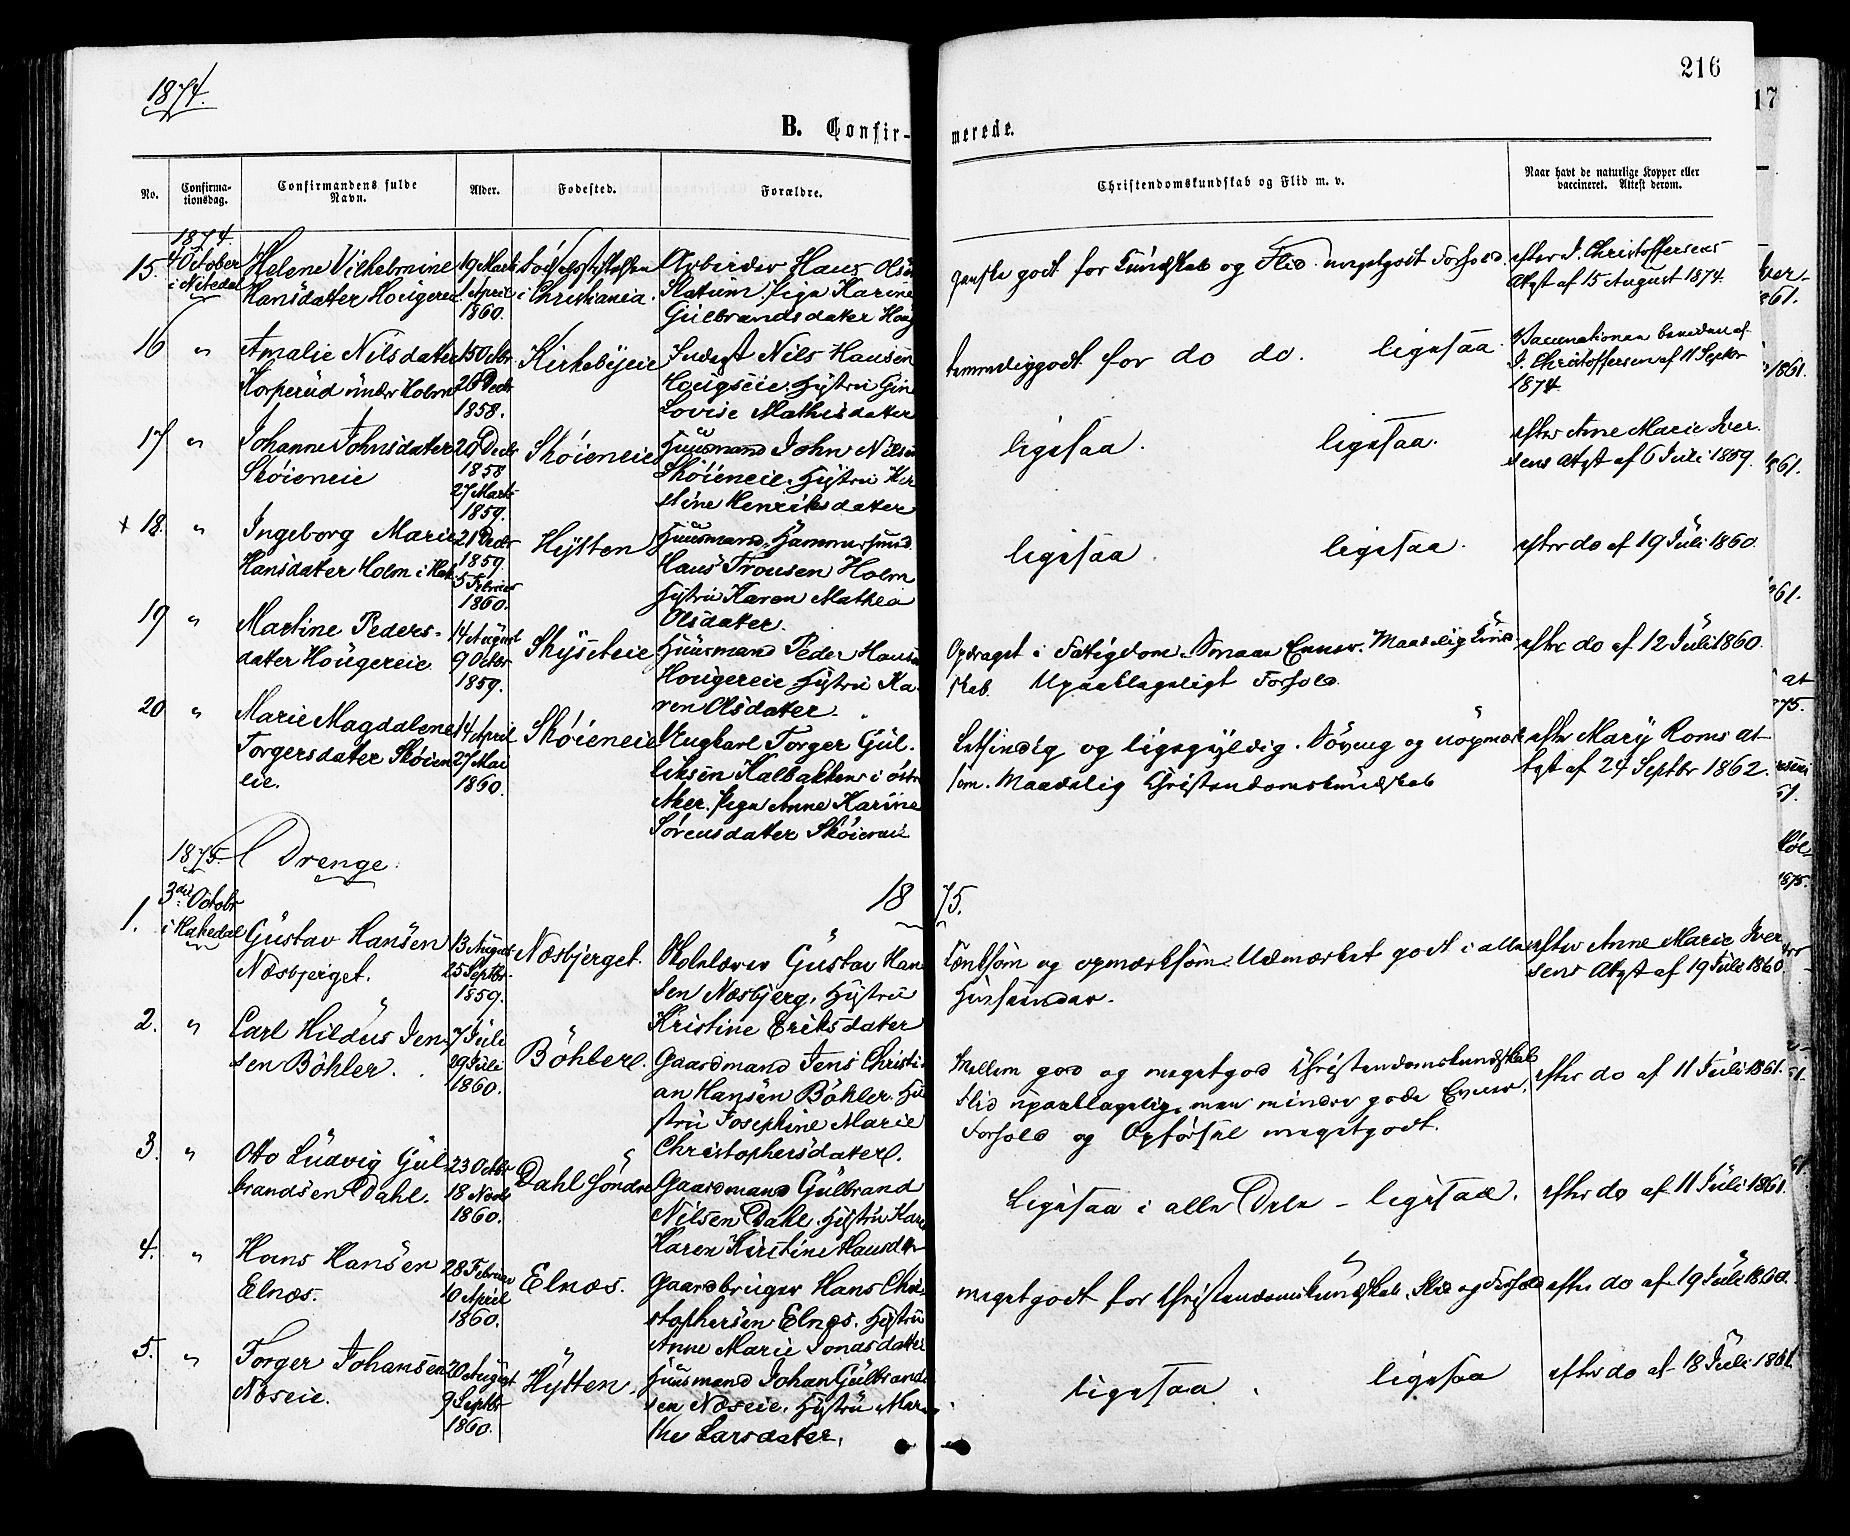 1874.
216
B. Confir-
merede.
No.
Confirma-
tionsdag.
Confirmandens fulde
Navn.
Alder.
Fødested.
Forældre.
Christendomskundskab og Flid m. v.
Naar havt de naturlige Kopper eller
vaccineret. Attest derom.
1874.
15. 4 October
i Nitedal
Helene Vilhelmine
Hansdater Hougereie
19 Marts
1 April
1860.
Fødselsstiftelsen
i Christiania.
Arbeider Hans Olsen
Slatum. Pige Karine
Gulbrandsdater Houg
ganske godt for Kundskab og Flid. megetgodt Forhold.
efter J. Christoffersens
Atgst af 15 August 1874.
16 "
Amalie Nilsdater
Korperud under Holm
15 Octbr
26 Decbr
1858.
Kirkebyeie
Inderst Nils Hansen
Hougseie. Hustru Gine
Lovise Mathisdater
temmeliggodt for do do. ligesaa.
Vaccinationen beviden af
J. Christoffersen af 11 Septbr
1874.
17 "
Johanne Johnsdater
Skøieneie
20 Decbr
1858
27 Marts
1859.
Skøieneie
Huusmand John Nilsen
Skøieneie. Hustru Kir
stine Henriksdater
ligesaa. ligesaa.
efter Anne Marie Iver
sens Atgst af 6 Juli 1859.
+ 18. "
Ingeborg Marie
Hansdater Holm i Hak
21 Decbr
1859.
5 Februar
1860.
Hytten
Huusmand, Hammersmed
Hans Tronsen Holm
Hustru Karen Mathea
Olsdater.
ligesaa. ligesaa.
efter do af 19 Juli 1860.
19 "
Martine Peders-
dater Hougereie
14 August
9 Octbr
1859.
Skyseteie
Huusmand Peder Hansen
Hougereie Hustru Ka-
ren Olsdater.
Opdraget i Fatigdom. Smaae Evner. Maadelig Kund
skab. Upaaklageligt Forhold.
efter do af 12 Juli 1860.
20 "
Marie Magdalene
Torgersdater Skøien
eie.
14 April
27 Mai
1860.
Skøieneie
Ungkarl Torger Gul-
liksen Kalbakken i østre
Aker. Pige Anne Karine
Sørensdater Skøieneie
Letsindig og ligegyldig. Døvug og uopmærk
som. Maadelig Christendomskundskab
efter Mary Roms at
tgst af 24 Septbr 1862.
1875. Drenge.
18 75.
1. 3die Octobr
i Hakedal
Gustav Hansen
Næsbjerget.
13 August
25 Septbr.
1859.
Næsbjerget.
Skolelærer Gustav Han
sen Næsbjerg, Hustru
Kristine Eriksdater
Tænksom og opmærksom. Udmærket godt i alle
Henseender.
efter Anne Marie Iver
sens Atgst af 19 Juli 1860.
2. "
Carl Hildus Jen
sen Bøhler.
7 Juli
29 Juli
1860.
Bøhler.
Gaardmand Jens Christi-
an Hansen Bøhler. Hu
stru Josephine Marie
Christophersdater.
Mellem god og megetgod Christendomskundskab
Flid upaaklagelig, men mindre gode Evner.
Forhold og Opførsel megetgodt.
efter do af 11 Juli 1861.
3. "
Otto Ludvig Gul
brandsen Dahl.
23 Octbr
18 Novbr
1860.
Dahl søndre
Gaardmand Gulbrand
Nilsen Dahl. Hustru Kare
Karen Kirstine Hansdtr
Ligesaa i alle Dele - ligesaa.
efter do af 11 Juli 1861.
4. "
Hans Hansen
Elnæs.
28 Februar
10 April
1860.
Elnæs.
Gaardbruger Hans Chri
stophersen Elnæs. Hustru
Anne Marie Jonasdater
megetgodt for Christendomskundskab, Flid og Forhold
efter do af 19 Juli 1860.
5. "
Torger Johansen
Næseie.
20 August
9 Septbr
1860.
Hytten.
Huusmand Johan Gulbrand
sen Næseie, Hustru Mar
the Larsdater.
ligesaa. ligesaa
efter do af 18 Juli 1861.